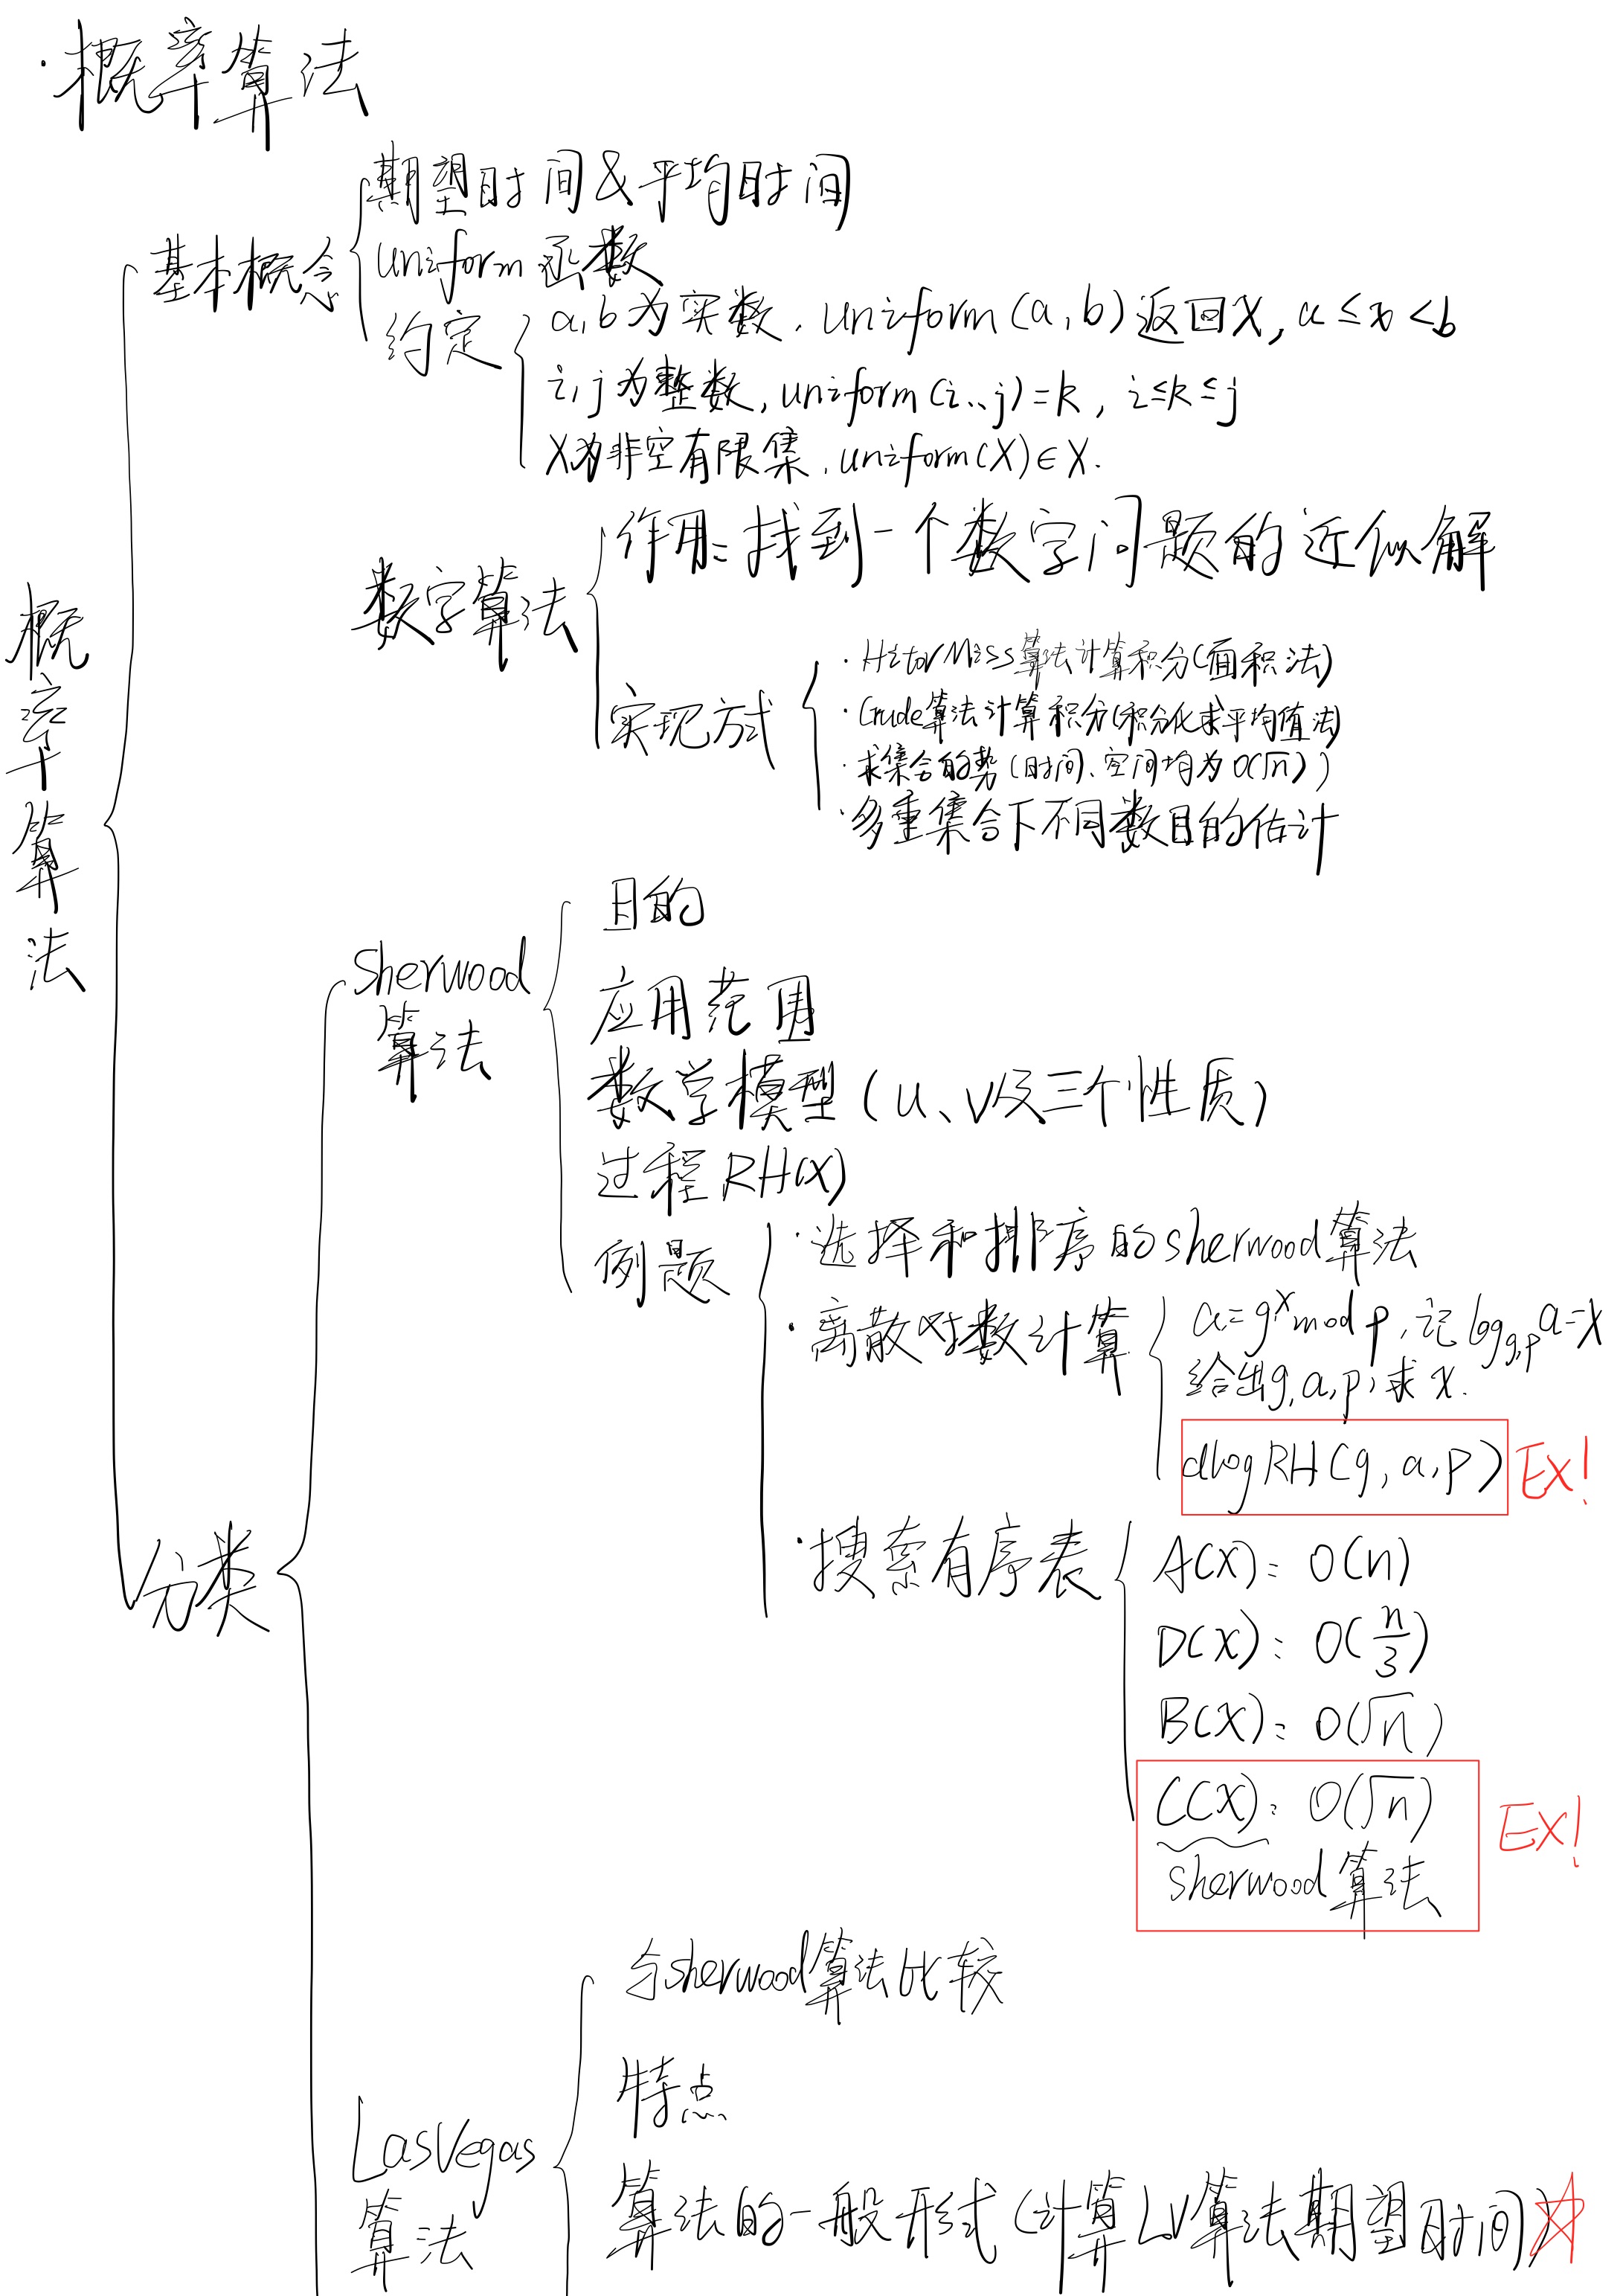 ·概率算法
概率算法
基本概念
期望时间&平均时间
uniform函数
约定
a,b为实数,uniform(a,b)返回X, a≤x<b
i,j为整数,uniform(i..j)=k, i≤k≤j
X为非空有限集,uniform(X)∈X.
分类
数字算法
作用:找到一个数字问题的近似解
实现方式
·HitorMiss算法计算积分(面积法)
·Crude算法计算积分(积分化求平均值法)
·求集合的势(时间、空间均为O(√n))
·多重集合下不同数目的估计
Sherwood
算法
目的
应用范围
数学模型(u、v及三个性质)
过程RH(X)
例题
·选择和排序的sherwood算法
·离散对数计算
a=g^x mod p,记log_{g,p}a=x
给出g,a,p,求x.
dlogRH(g,a,p) Ex!
·搜索有序表
A(X): O(n)
D(X): O(n/3)
B(X): O(√n)
C(X): O(√n)
sherwood算法
Ex!
LasVegas
算法
与sherwood算法比较
特点
算法的一般形式(计算LV算法期望时间)☆